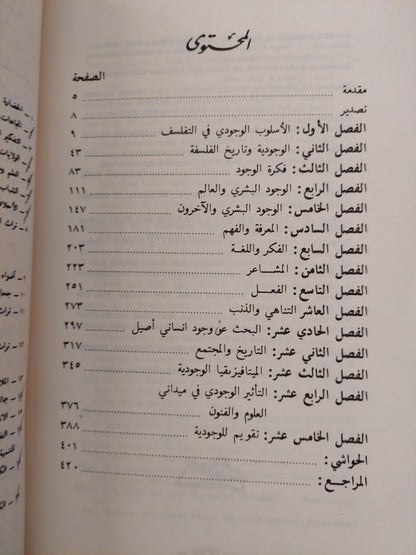 المحتوى
الصفحة
مقدمة ٥
تصدير ٨
الفصل الأول: الأسلوب الوجودي في التفلسف ٩
الفصل الثاني: الوجودية وتاريخ الفلسفة ٤٣
الفصل الثالث: فكرة الوجود ٨٣
الفصل الرابع: الوجود البشري والعالم ١١١
الفصل الخامس: الوجود البشري والآخرون ١٤٧
الفصل السادس: المعرفة والفهم ١٨١
الفصل السابع: الفكر واللغة ٢٠٣
الفصل الثامن: المشاعر ٢٢٣
الفصل التاسع: الفعل ٢٥١
الفصل العاشر التناهي والذنب ٢٧٣
الفصل الحادي عشر: البحث عن وجود انساني أصيل ٢٩٧
الفصل الثاني عشر: التاريخ والمجتمع ٣١٧
الفصل الثالث عشر: الميتافيزيقيا الوجودية ٣٤٥
الفصل الرابع عشر: التأثير الوجودي في ميداني
العلوم والفنون ٣٧٦
الفصل الخامس عشر: تقويم للوجودية ٣٨٨
الحواشي: ٤٠١
المراجع: ٤٢٠